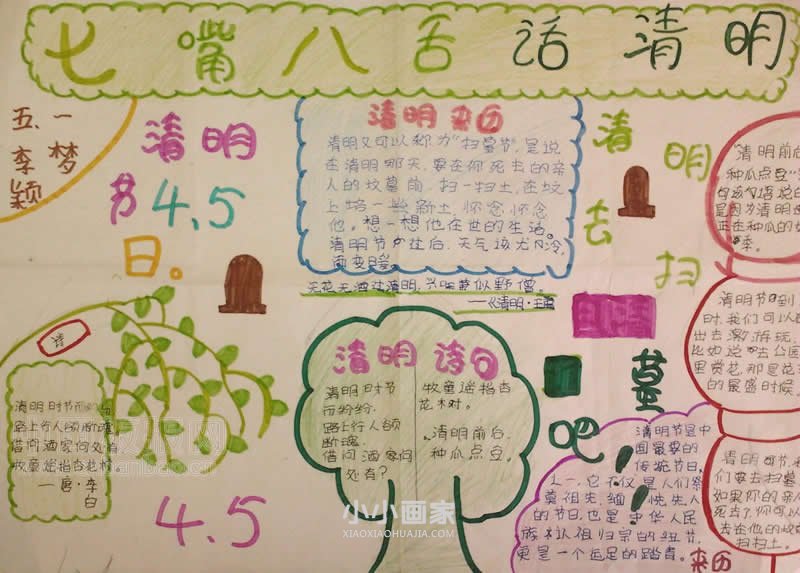 七嘴八舌话清明
五、一
李梦
颖
清明
节 4.5
日。
清明来历
清明又可以称为"扫墓节",是说
在清明那天,要在你死去的亲
人的坟墓前,扫一扫土,在坟
上培一些新土,怀念怀念
他。想一想他在世的生活。
清明节过后,天气该尤冷,
面变日暖
无花无酒过清明,兴味萧似野僧。
——《清明·王
清明
去扫
墓
吧!!!
清明诗句
清明时节
雨纷纷,
路上行人欲
断魂。
借问酒家何
处有?
牧童遥指杏
花村。
清明前后,
种瓜点豆。
清明时节雨纷
路上行人欲断魂。
借问酒家何处有
牧童遥指杏花村。
—唐·李
白
4.5
"清明前后
种瓜点豆"
句话说的
是因为清明
正在种瓜的
季。
清明节到
时,我们可以
出去游玩,
比如说:去公园
里赏花,那是花
的最盛时候
清明时节,我
们要去扫墓
如果你的亲
死去了,你可以
去在他的坟
扫扫土。
清明节是中
国最要的
传统节日
之一,它不仅是人们祭
奠祖先缅怀先人
的节日,也是中华人民
族认祖归宗的纽节,
更是一个远足的踏青。
来历
小小画家
XIAOXIAOHUAJIA.COM